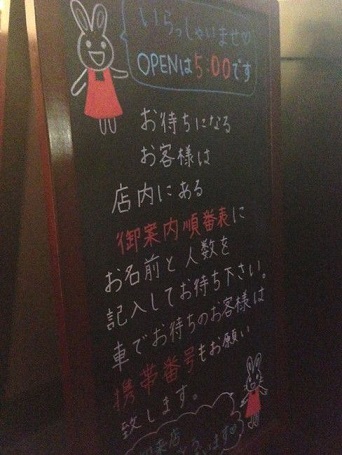 いらっしゃいませ♡
OPENは5:00です
お待ちになる
お客様は
店内にある
御案内順番表に
お名前と人数を
記入してお待ち下さい。
車でお待ちのお客様は
携帯番号もお願い
致します。